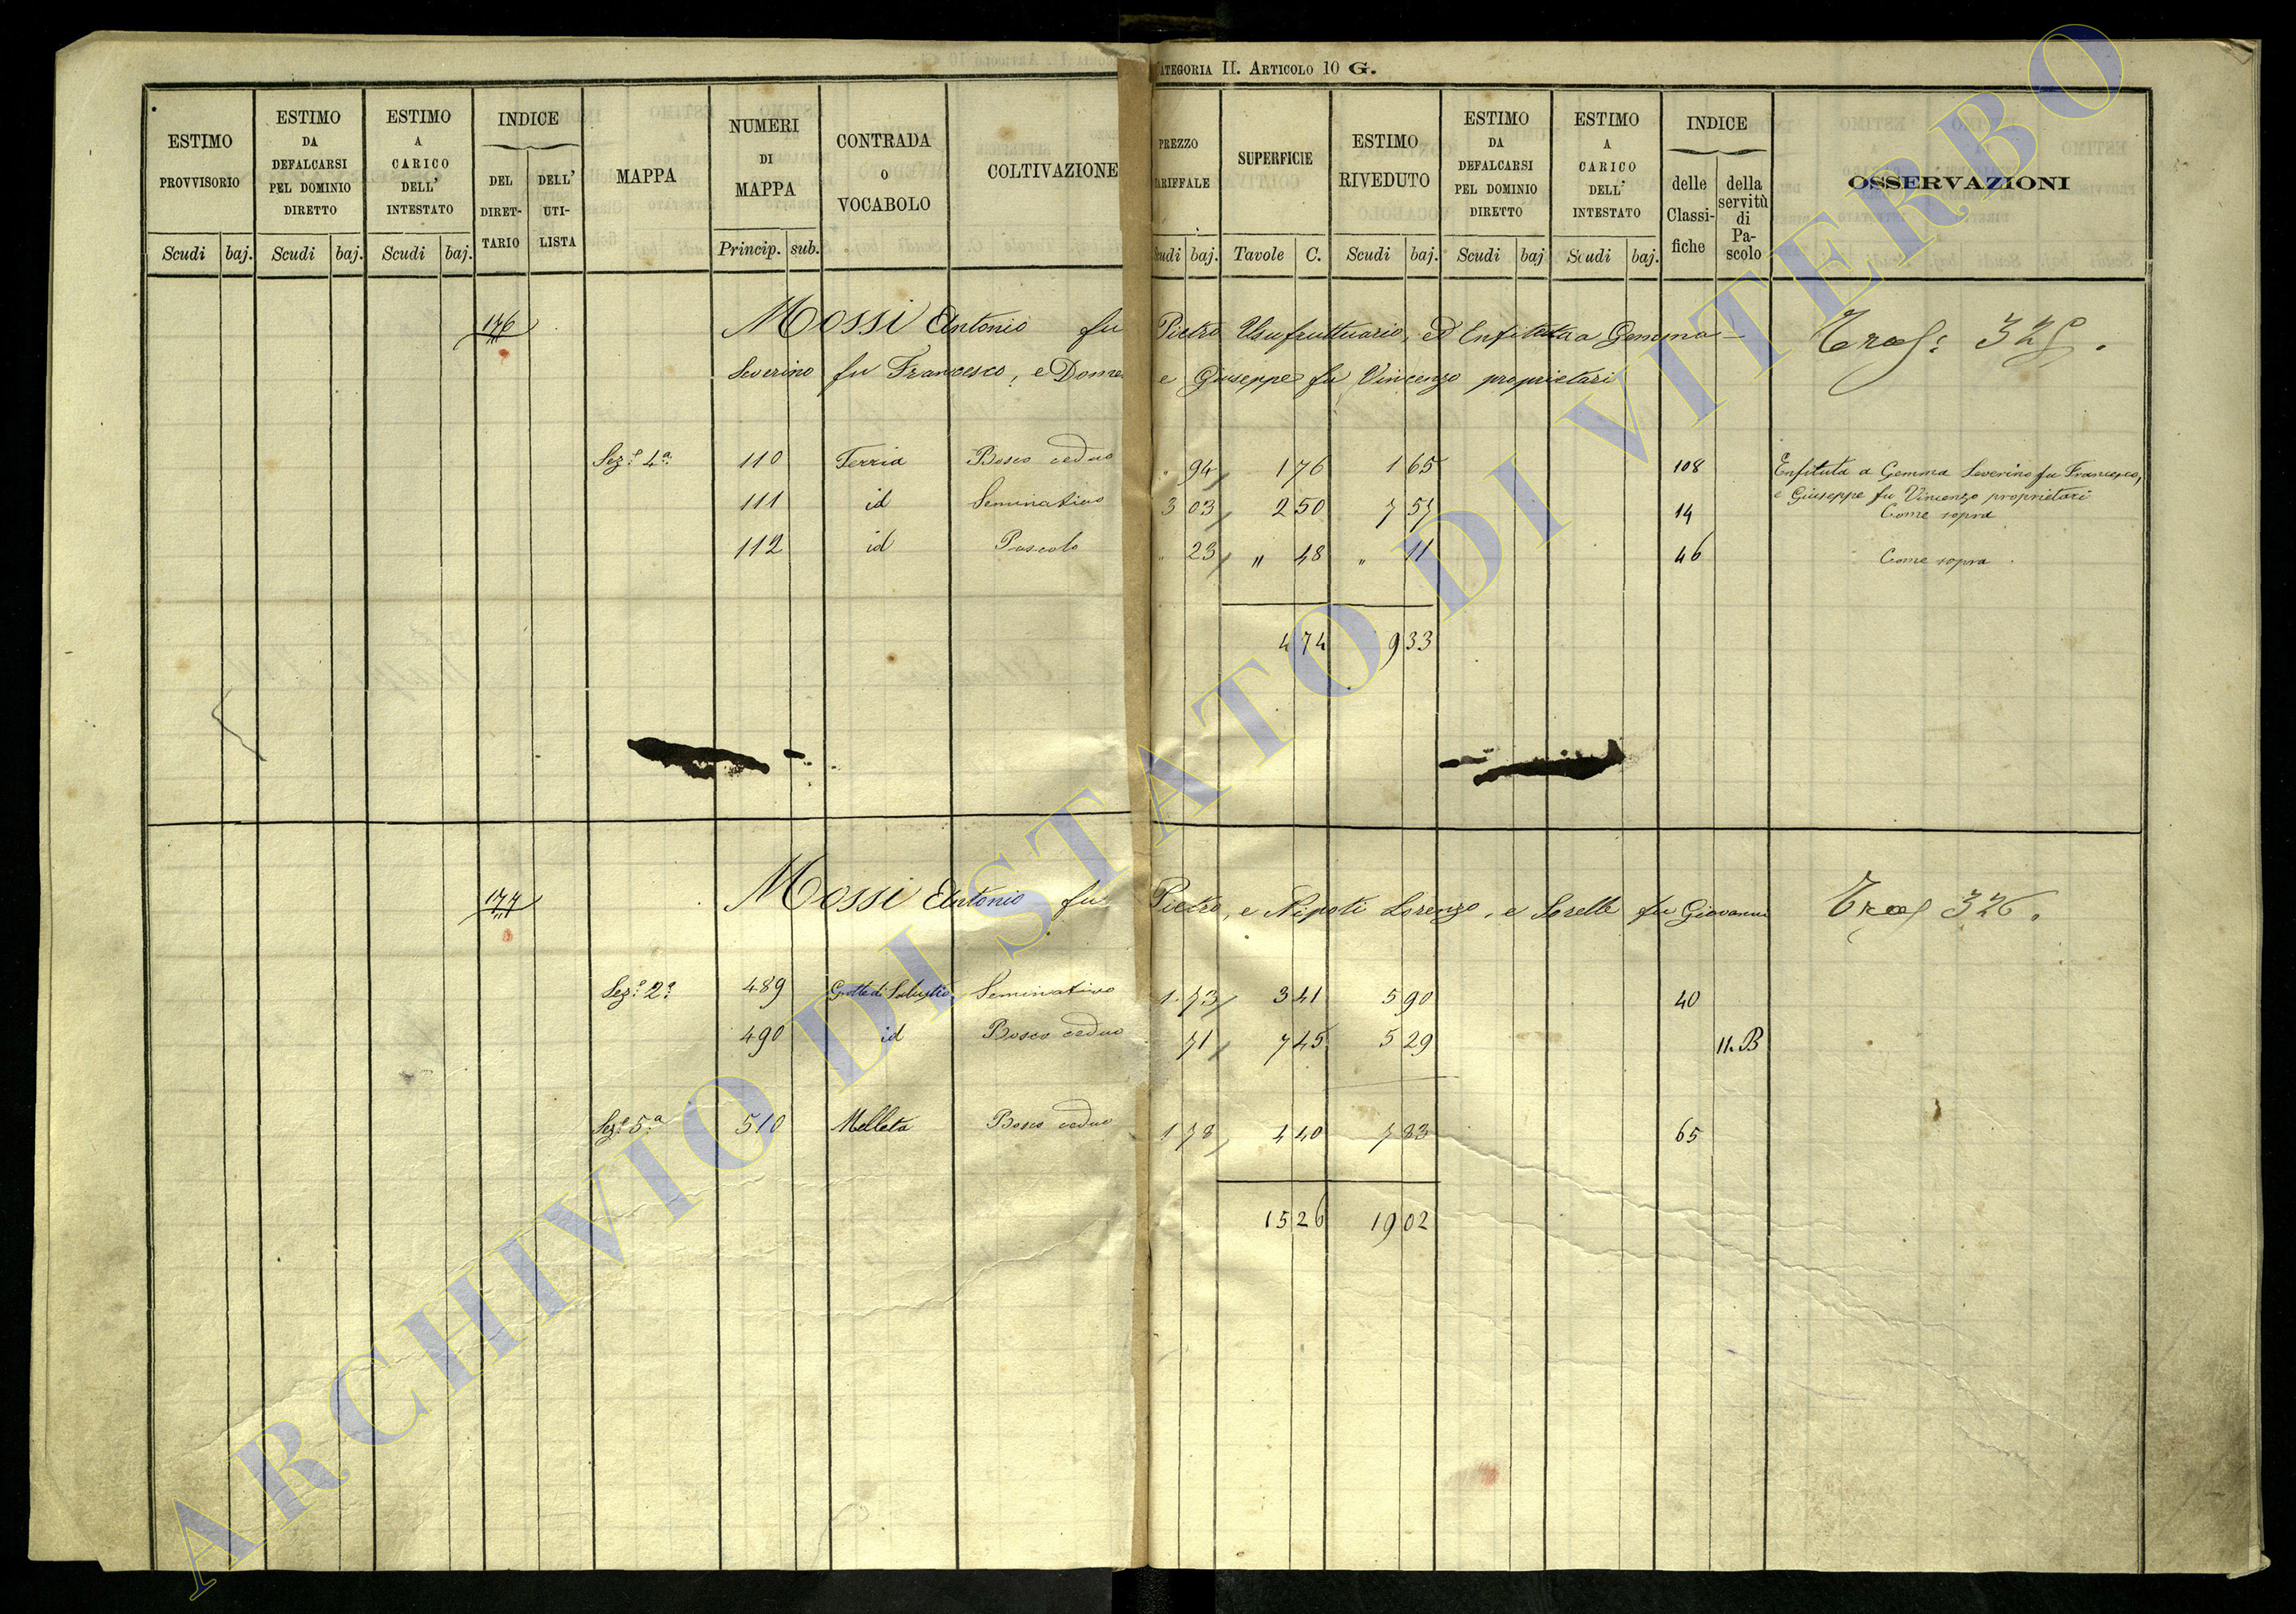 CATEGORIA II. ARTICOLO 10 G.
ESTIMO PROVVISORIO Scudi baj.
ESTIMO DA DEFALCARSI PEL DOMINIO DIRETTO Scudi baj.
ESTIMO A CARICO DELL' INTESTATO Scudi baj.
INDICE DEL DIRETTARIO DELL' UTILISTA
MAPPA
NUMERI DI MAPPA Princip. sub.
CONTRADA O VOCABOLO
COLTIVAZIONE
PREZZO TARIFFALE Scudi baj.
SUPERFICIE Tavole C.
ESTIMO RIVEDUTO Scudi baj.
ESTIMO DA DEFALCARSI PEL DOMINIO DIRETTO Scudi baj
ESTIMO A CARICO DELL' INTESTATO Scudi baj.
INDICE delle Classifiche della servitù di Pascolo
OSSERVAZIONI
176 Mossi Antonio fu Pietro Usufruttuario, ed Enfiteuta a Gemma
Severino fu Francesco, e e Giuseppe fu Vincenzo proprietari
Sez.e 4a. 110 Ferria Bosco ceduo " 94 1 76 1 65 108 Enfiteuta a Gemma Severino fu Francesco,
e Giuseppe fu Vincenzo proprietari
111 id Seminativo 3 03 2 50 7 57 14 Come sopra
112 id Pascolo " 23 " 48 " 11 46 Come sopra
4 74 9 33
177 Mossi Antonio fu Pietro, e Nipoti Lorenzo, e Sorelle fu Giovanni 326.
Sez.e 2a 489 Grotte di Salustio Seminativo 1 73 3 41 5 90 40
490 id Bosco ceduo 71 7 45 5 29 11. B
Sez.e 5a 510 Melleta Bosco ceduo 1 78 4 40 7 83 65
15 26 19 02
ARCHIVIO DI STATO DI VITERBO